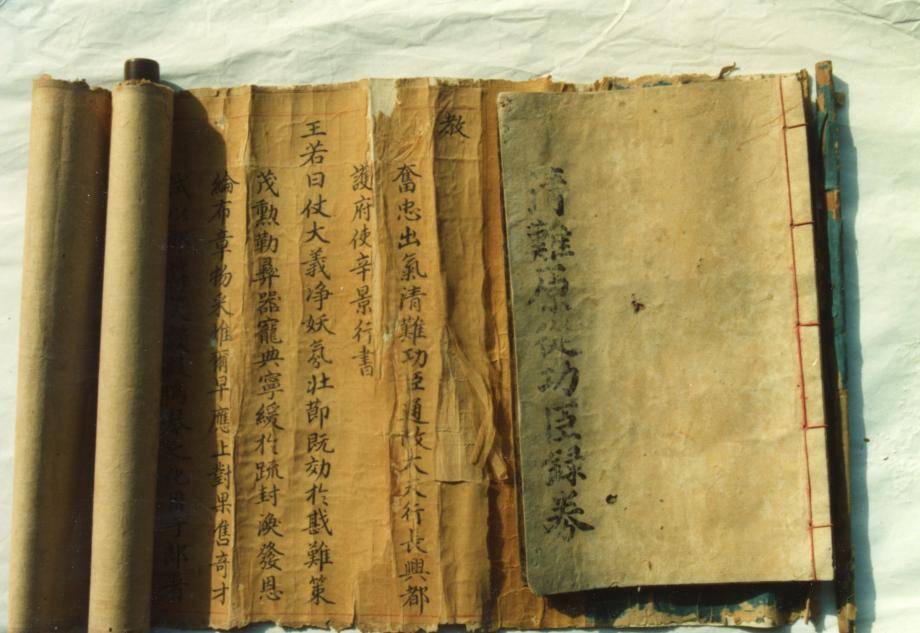 清難原從功臣錄券
教
奮忠出氣清難功臣通政大夫行長興都
護府使辛景行書
王若曰仗大義净妖氛壯節既効於戡難策
茂勲勤彝器寵典寧緩於疏封渙發恩
綸布章物采惟爾早應上對果雋奇才
試之化